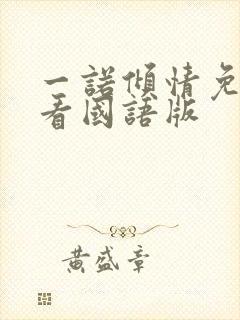 一諾傾情免
看國語版
黃盛章